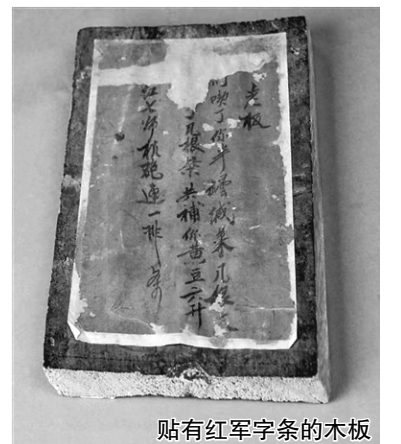 老板
喫了你半罈咸菜几
几根柴共補你黄豆六升
红七师机砲連一排
贴有红军字条的木板